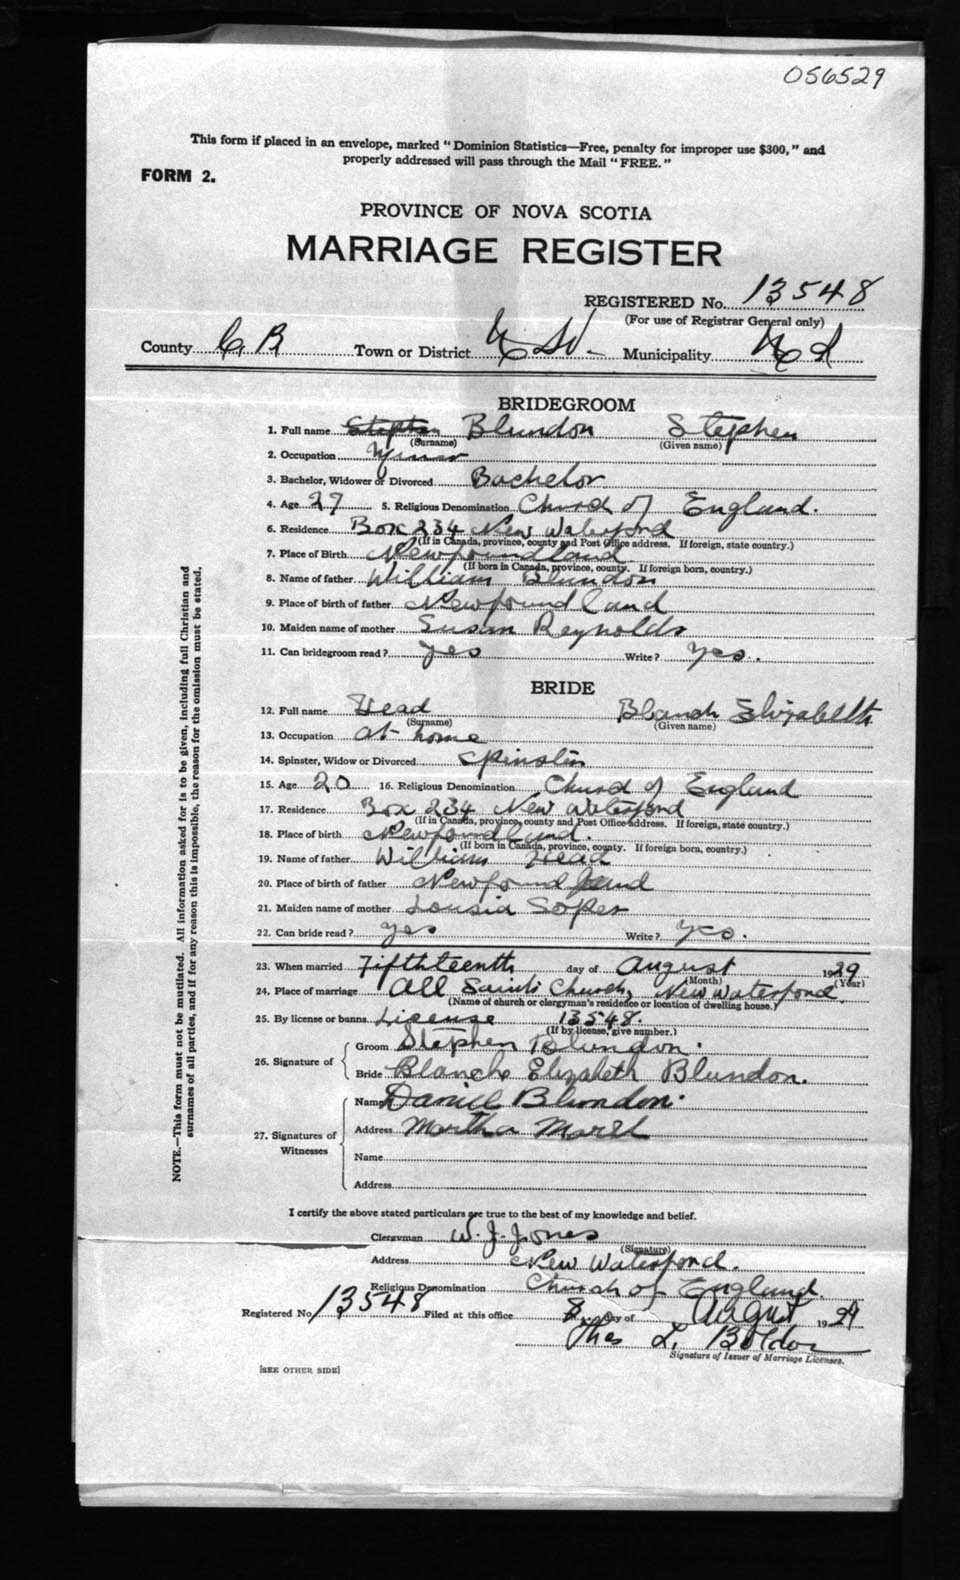 056529
This form if placed in an envelope, marked "Dominion Statistics—Free, penalty for improper use $300," and
properly addressed will pass through the Mail "FREE."
FORM 2.
PROVINCE OF NOVA SCOTIA
MARRIAGE REGISTER
REGISTERED No. 13548
(For use of Registrar General only)
County C B Town or District Municipality
BRIDEGROOM
1. Full name Stephen Blundon Stephen
(Surname) (Given name)
2. Occupation Miner
3. Bachelor, Widower or Divorced Bachelor
4. Age 27 5. Religious Denomination Church of England.
6. Residence Box 234 New Waterford
(If in Canada, province, county and Post Office address. If foreign, state country.)
7. Place of Birth Newfoundland
(If born in Canada, province, county. If foreign born, country.)
8. Name of father William Blundon
9. Place of birth of father Newfoundland
10. Maiden name of mother Susan Reynolds
11. Can bridegroom read? yes Write? yes.
BRIDE
12. Full name Head Blanch Elizabeth
(Surname) (Given name)
13. Occupation at home
14. Spinster, Widow or Divorced Spinster
15. Age 20 16. Religious Denomination Church of England
17. Residence Box 234 New Waterford
(If in Canada, province, county and Post Office address. If foreign, state country.)
18. Place of birth Newfoundland.
(If born in Canada, province, county. If foreign born, country.)
19. Name of father William Head
20. Place of birth of father Newfoundland
21. Maiden name of mother Lousia Soper
22. Can bride read? yes Write? yes.
23. When married Fifthteenth day of August 1929
(Month) (Year)
24. Place of marriage All Saints Church, New Waterford.
(Name of church or clergyman's residence or location of dwelling house.)
25. By license or banns License 13548.
(If by license, give number.)
26. Signature of Groom Stephen Blundon.
Bride Blanche Elizabeth Blundon.
27. Signatures of Witnesses
Name Daniel Blundon.
Address Martha Marsh
Name
Address
I certify the above stated particulars are true to the best of my knowledge and belief.
Clergyman W. J. Jones
(Signature)
Address New Waterford.
Religious Denomination Church of England.
Registered No 13548 Filed at this office 8 day of August 1929
Thos L.
Signature of Issuer of Marriage Licenses.
[SEE OTHER SIDE]
NOTE.—This form must not be mutilated. All information asked for is to be given, including full Christian and
surnames of all parties, and if for any reason this is impossible, the reason for the omission must be stated.